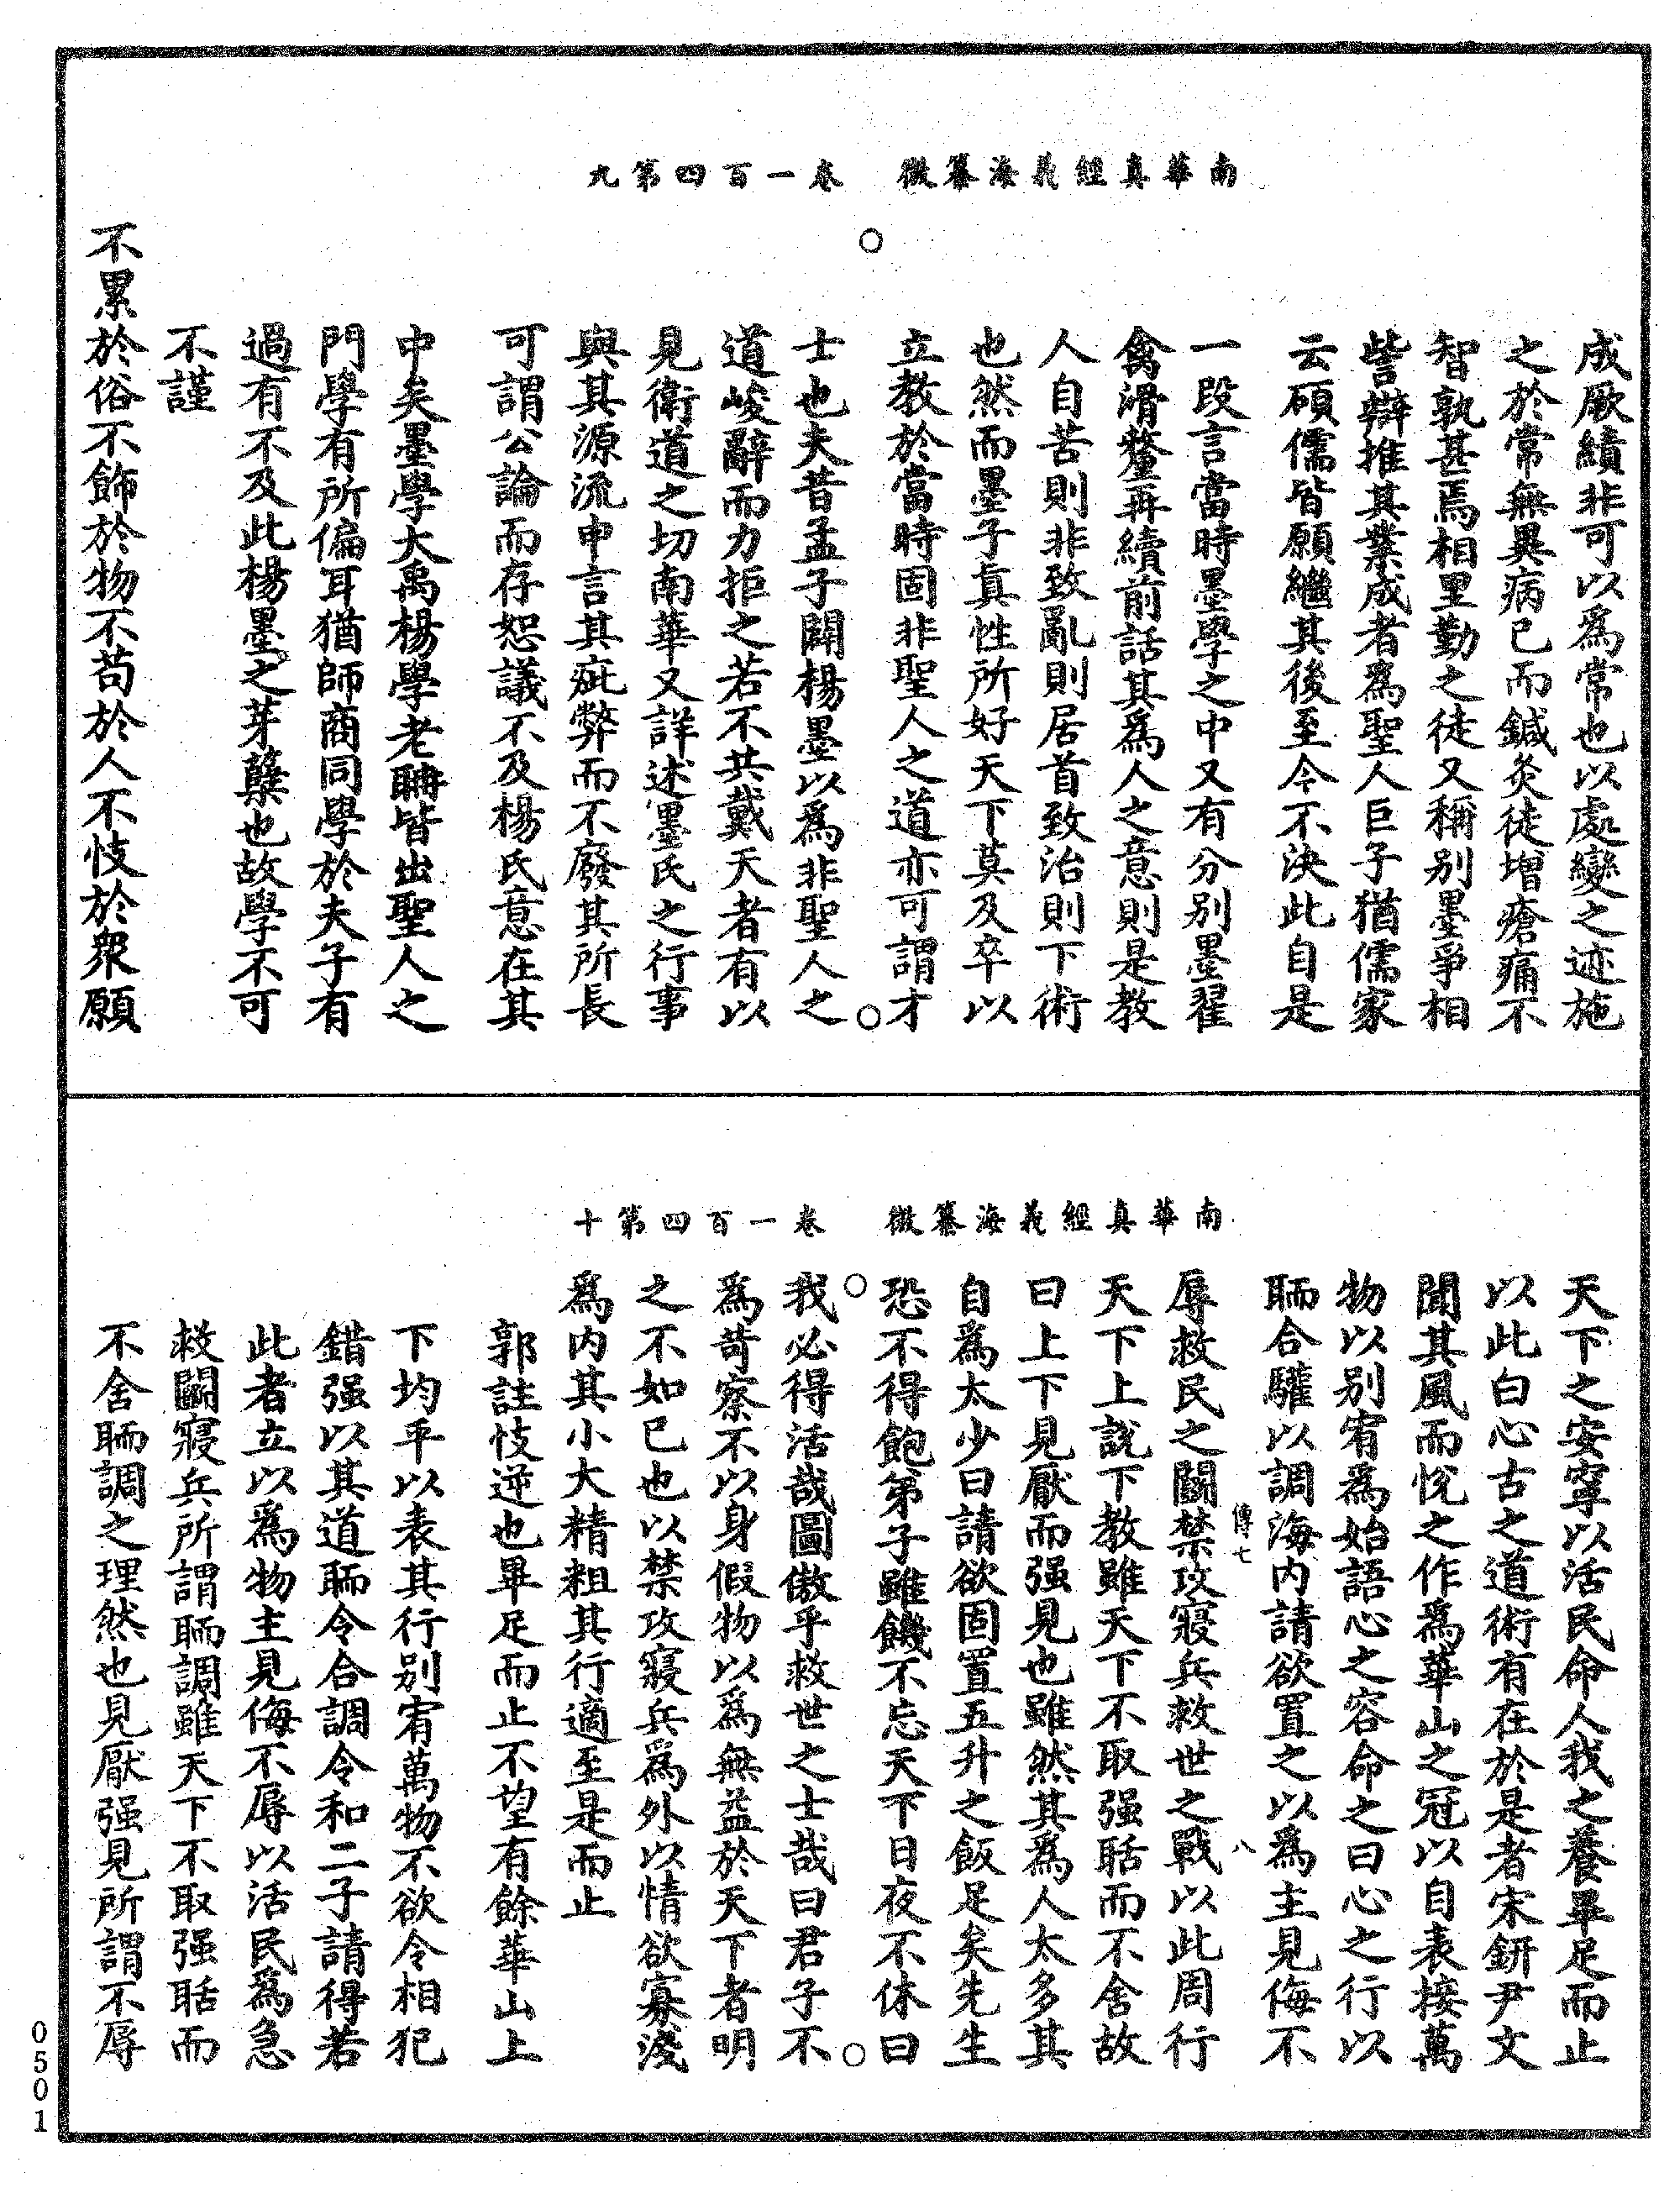 南華真經義海纂微　卷一百四第九
成厥績非可以爲常也以處變之迹施
之於常無異病已而鍼灸徒增瘡痛不
智孰甚焉相里勤之徒又稱别墨爭相
訾辯推其業成者爲聖人巨子猶儒家
云碩儒皆願繼其後至今不決此自是
一段言當時墨學之中又有分别墨翟
禽滑釐再續前話其爲人之意則是教
人自苦則非致亂則居首致治則下術
也然而墨子真性所好天下莫及卒以
立教於當時固非聖人之道亦可謂才
士也夫昔孟子闢楊墨以爲非聖人之
道峻辭而力拒之若不共戴天者有以
見衛道之切南華又詳述墨氏之行事
與其源流申言其疵弊而不廢其所長
可謂公論而存恕議不及楊氏意在其
中矣墨學大禹楊學老聃皆出聖人之
門學有所偏耳猶師商同學於夫子有
過有不及此楊墨之芽蘖也故學不可
不謹
不累於俗不飾於物不苟於人不忮於衆願
南華真經義海纂微　卷一百四第十
天下之安寧以活民命人我之養畢足而止
以此白心古之道術有在於是者宋鈃尹文
聞其風而悅之作爲華山之冠以自表接萬
物以别宥爲始語心之容命之曰心之行以
聏合驩以調海内請欲置之以爲主見侮不
傳七　八
辱救民之鬭禁攻寢兵救世之戰以此周行
天下上說下教雖天下不取强聒而不舍故
曰上下見厭而强見也雖然其爲人太多其
自爲太少曰請欲固置五升之飯足矣先生
恐不得飽弟子雖饑不忘天下日夜不休曰
我必得活哉圖傲乎救世之士哉曰君子不
爲苛察不以身假物以爲無益於天下者明
之不如已也以禁攻寢兵爲外以情欲寡淺
爲内其小大精粗其行適至是而止
郭註忮逆也畢足而止不望有餘華山上
下均平以表其行别宥萬物不欲令相犯
錯强以其道聏令合調令和二子請得若
此者立以爲物主見侮不辱以活民爲急
救鬭寢兵所謂聏調雖天下不取强聒而
不舍聏調之理然也見厭强見所謂不辱
0501